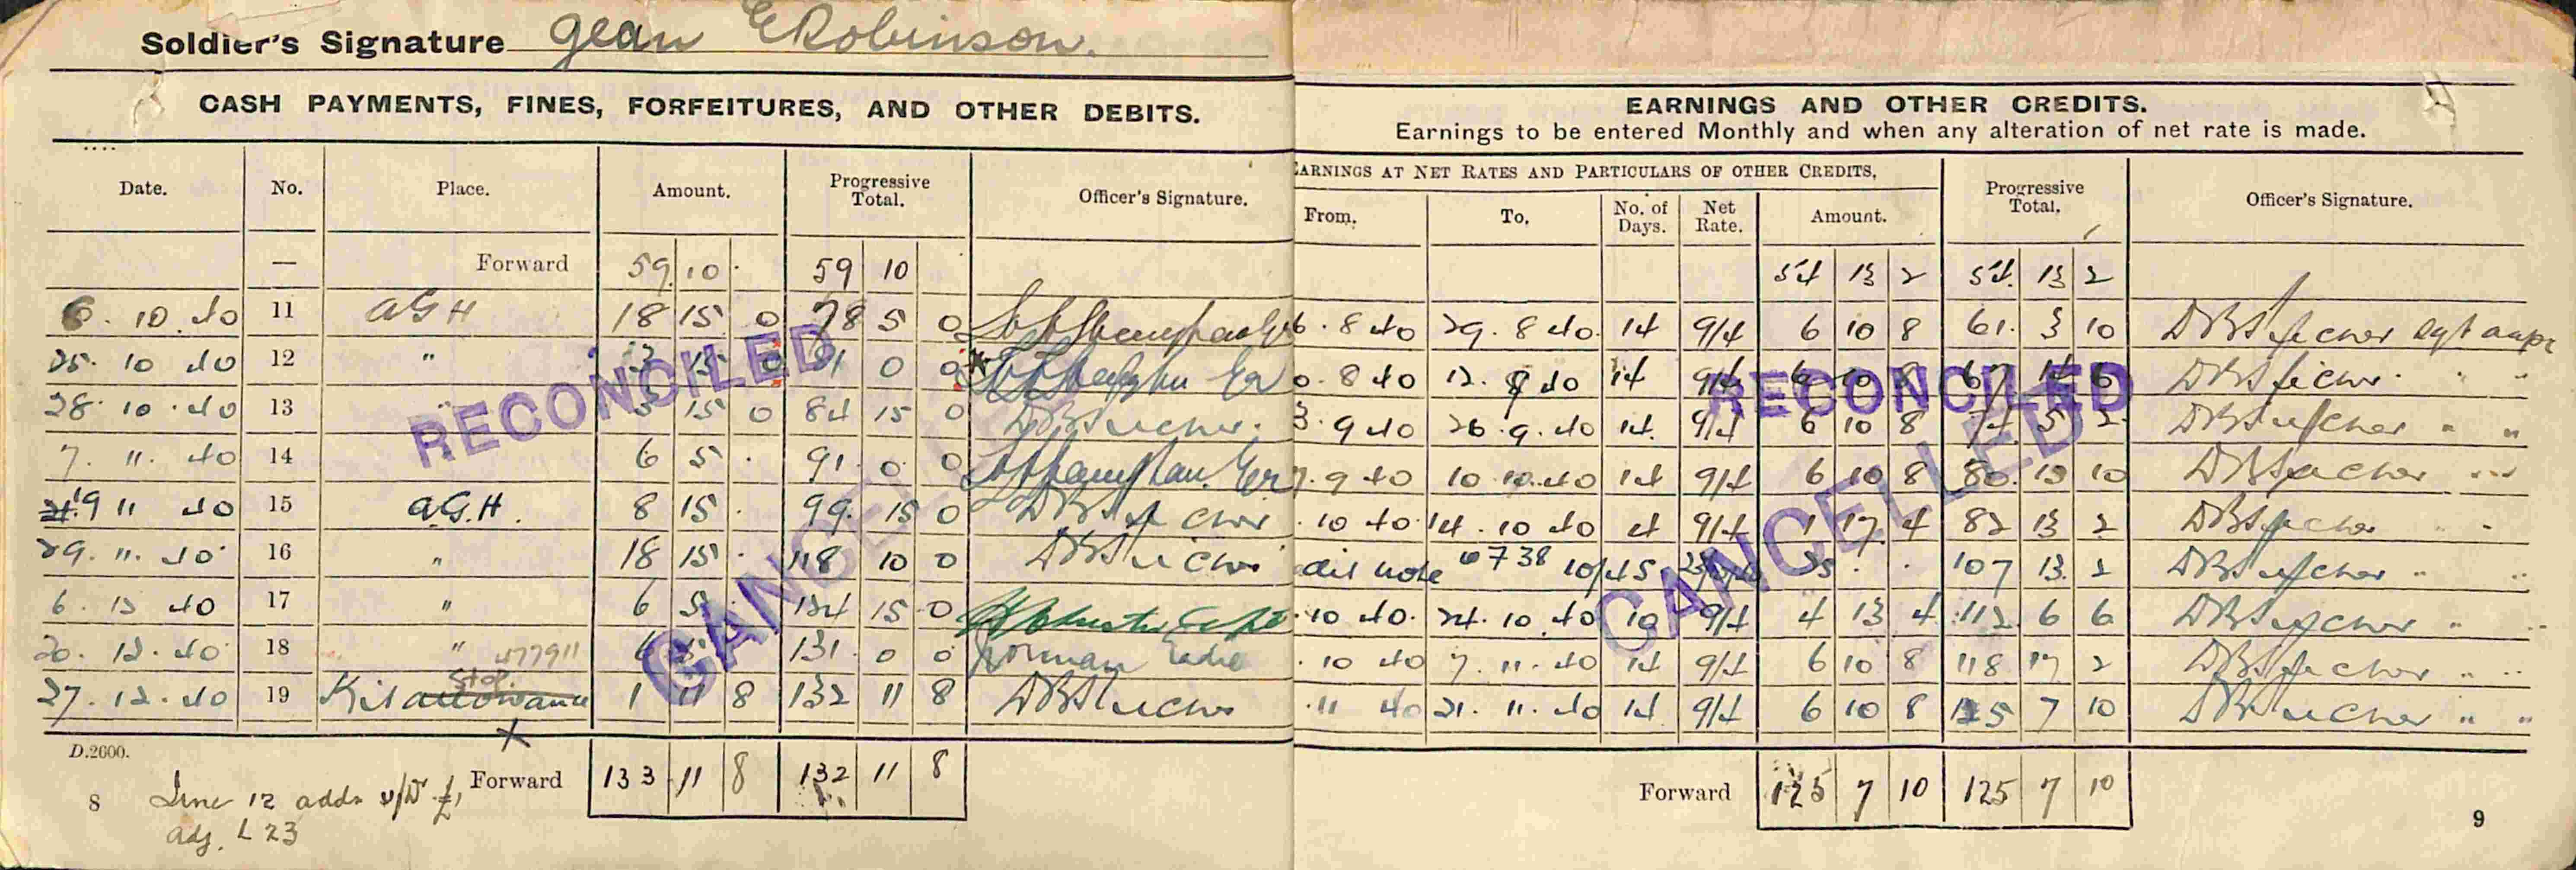 Soldier's Signature Jean E Robinson.
CASH PAYMENTS, FINES, FORFEITURES, AND OTHER DEBITS.
Date. No. Place. Amount. Progressive Total. Officer's Signature.
— Forward 59 10 · 59 10
6. 10. 40 11 AGH 18 15 0 78 5 0
25. 10 40 12 " 15 0 81 0 0
28. 10. 40 13 " 3 15 0 84 15 0
7. 11. 40 14 6 5 · 91 0 0
19 11 40 15 A.G.H. 8 15 · 99. 15 0
29. 11. 40 16 " 18 15 · 118 10 0
6. 12 40 17 " 6 5 · 124 15 0
20. 12. 40 18 " 477911 6 5 · 131 0 0
Stop.
27. 12. 40 19 Kit allowance 1 11 8 132 11 8
D.2600.
Forward 133 11 8 132 11 8
8 Line 12 addn £1
adj. L 23
RECONCILED
CANCELLED
EARNINGS AND OTHER CREDITS.
Earnings to be entered Monthly and when any alteration of net rate is made.
EARNINGS AT NET RATES AND PARTICULARS OF OTHER CREDITS.
From. To. No. of Days. Net Rate. Amount. Progressive Total. Officer's Signature.
54 13 2 54 13 2
6. 8 40 29. 8 40. 14 9/4 6 10 8 61. 3 10
0. 8 40 12. 9 40 14 9/4 6 10 8 67 14 6
3. 9 40 26. 9. 40 14. 9/4 6 10 8 74 5 2
7. 9 40 10 10. 40 14 9/4 6 10 8 80. 15 10
. 10 40. 14. 10 40 4 9/4 1 17 4 82 13 2
edit note 6738 10/45 25 · · 107 13. 2
. 10 40. 24. 10. 40 10 9/4 4 13 4 112 6 6
. 10 40 7. 11. 40 14 9/4 6 10 8 118 17 2
. 11 40 21. 11. 40 14 9/4 6 10 8 125 7 10
Forward 125 7 10 125 7 10
9
RECONCILED
CANCELLED